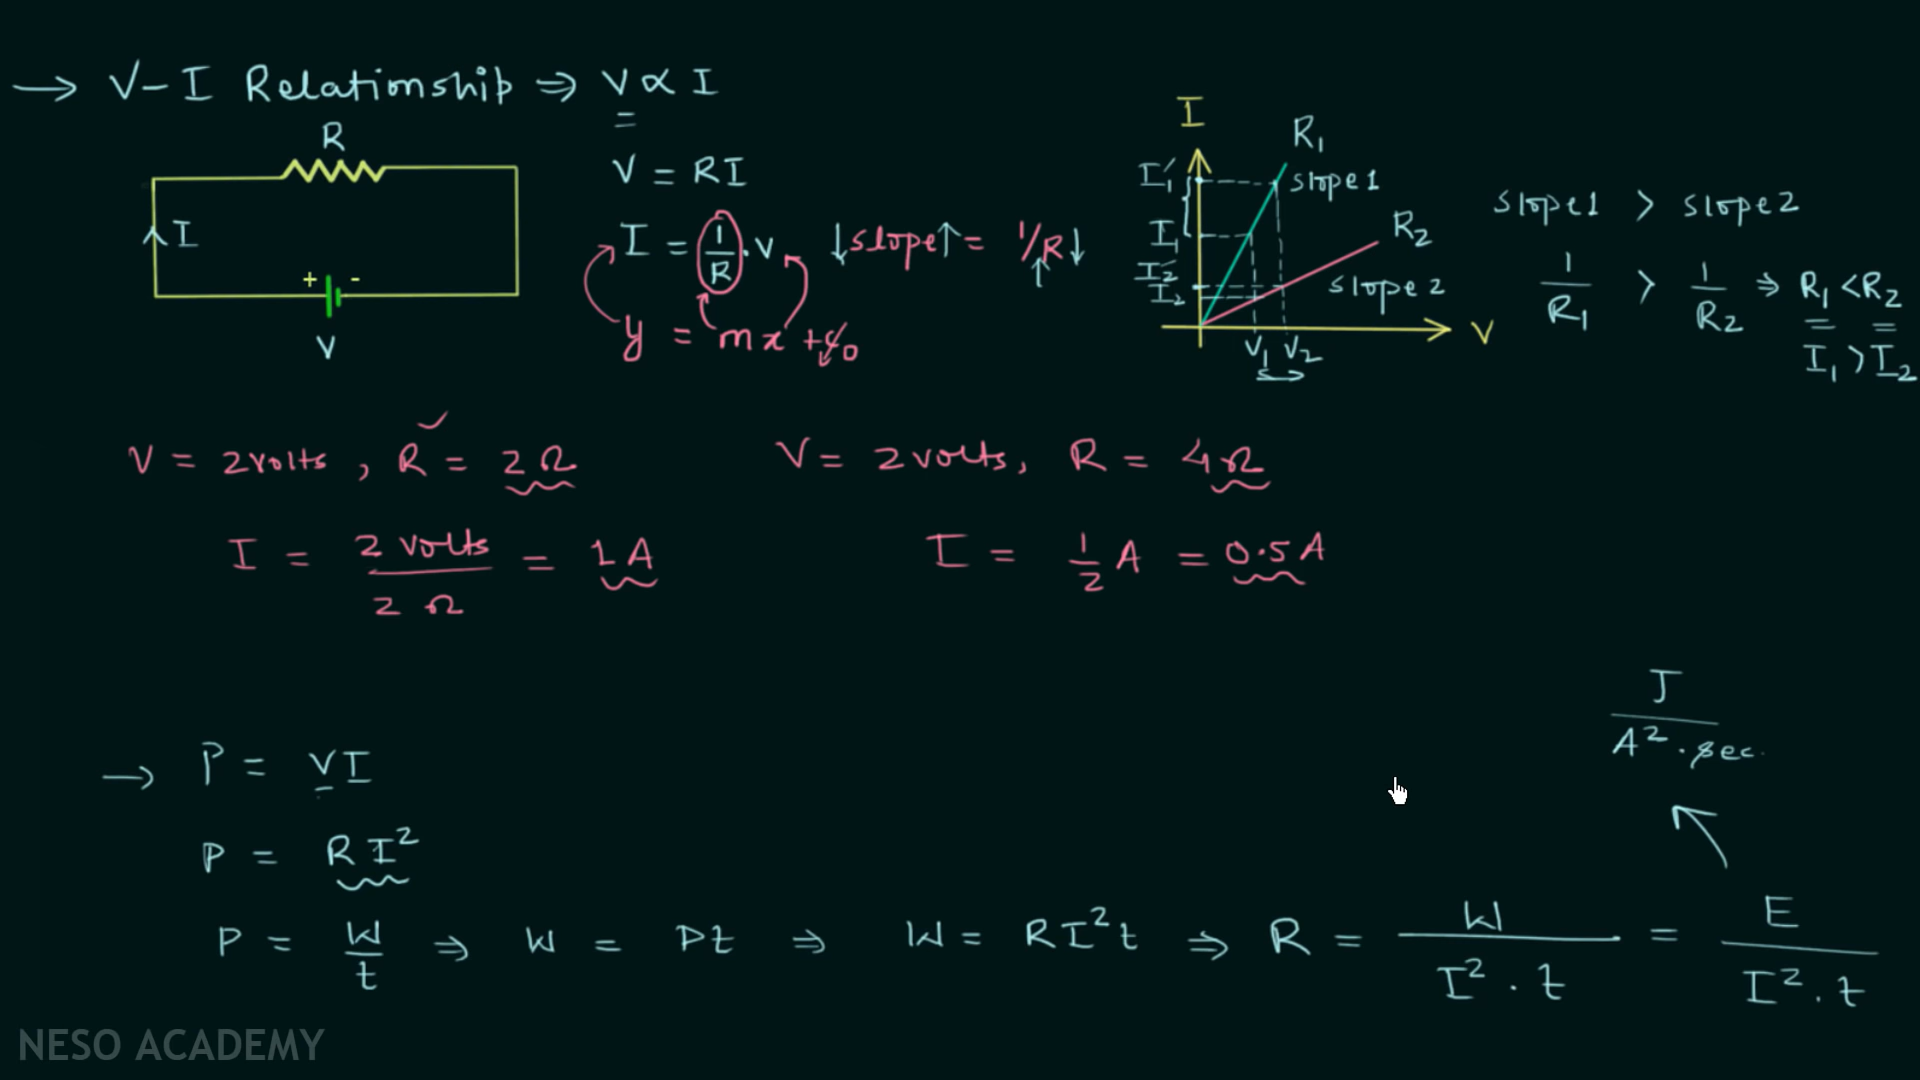 → V-I Relationship ⇒ V ∝ I
R
I
+ -
V
V = RI
I = 1/R · V
↓slope↑ = 1/R↓
↑
y = mx + c 0
I
R₁
I₁′
slope1
I₁
R₂
I₂′
I₂
slope 2
V₁ V₂
V
slope1 > slope2
1/R₁ > 1/R₂ ⇒ R₁ < R₂
I₁ > I₂
V = 2 volts, R = 2Ω
I = 2 volts / 2 Ω = 1A
V = 2 volts, R = 4Ω
I = 1/2 A = 0.5 A
→ P = VI
P = RI²
P = W/t ⇒ W = Pt ⇒ W = RI²t ⇒ R = W / I² · t = E / I² · t
J / A² · sec
NESO ACADEMY